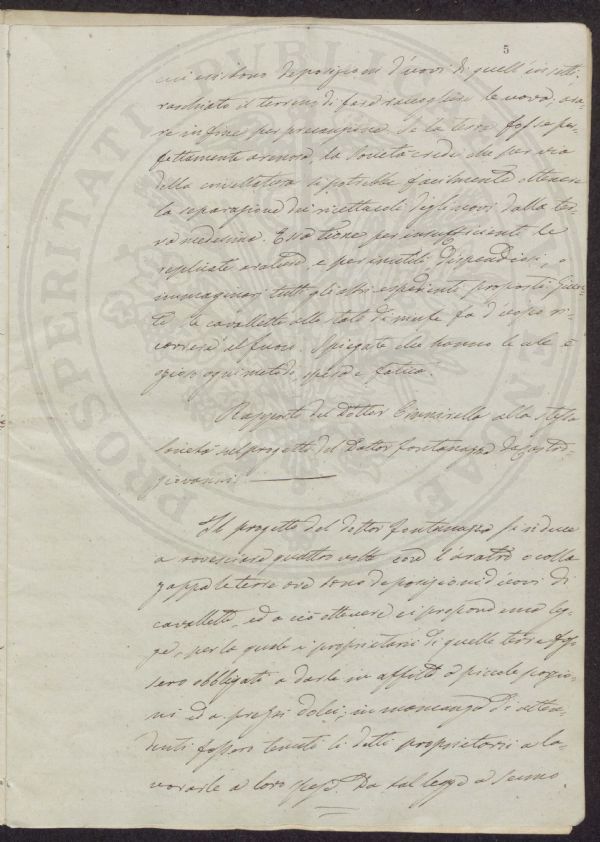 5
cui esistono deposizioni d'uovi di quell'insetti,
raschiato il terreno di farsi raccogliere le uova, ara-
re infine per precauzione. Se la terra fosse per-
fettamente arenosa la Società crede che per via
della crivellatura si potrebbe facilmente ottenere
la separazione dei ricettacoli degli uovi dalla ter-
ra medesima. Essa tiene per insufficiente le
replicate arature, e per inutili, dispendiosi, o
immaginari tutti gli altri espedienti proposti. Giun-
te le cavallette allo stato di mute fa d'uopo ri-
correre al fuoco. Spiegate che hanno le ale è
ogni metodo spesa e fatica.
Rapporto del Dottor alla stessa
Società sul progetto del Dottor Fontanazza da Castro-
giovanni.
Il progetto del dottor Fontanazza si riduce
a rovesciare quattro volte con l'aratro o colla
zappa le terre ove sono deposizioni d'uovi di
cavallette, ed a ciò ottenere ei propone una leg-
ge, per la quale i proprietarii di quelle terre fos-
sero obbligati a darle in affitto a piccole porzio-
ni ed a prezzi dolci; in mancanza di atten-
denti fossero tenuti li detti proprietarii a la-
vorarle a loro spese. Da tal legge a senno
PROSPERITATI PVBLICAE